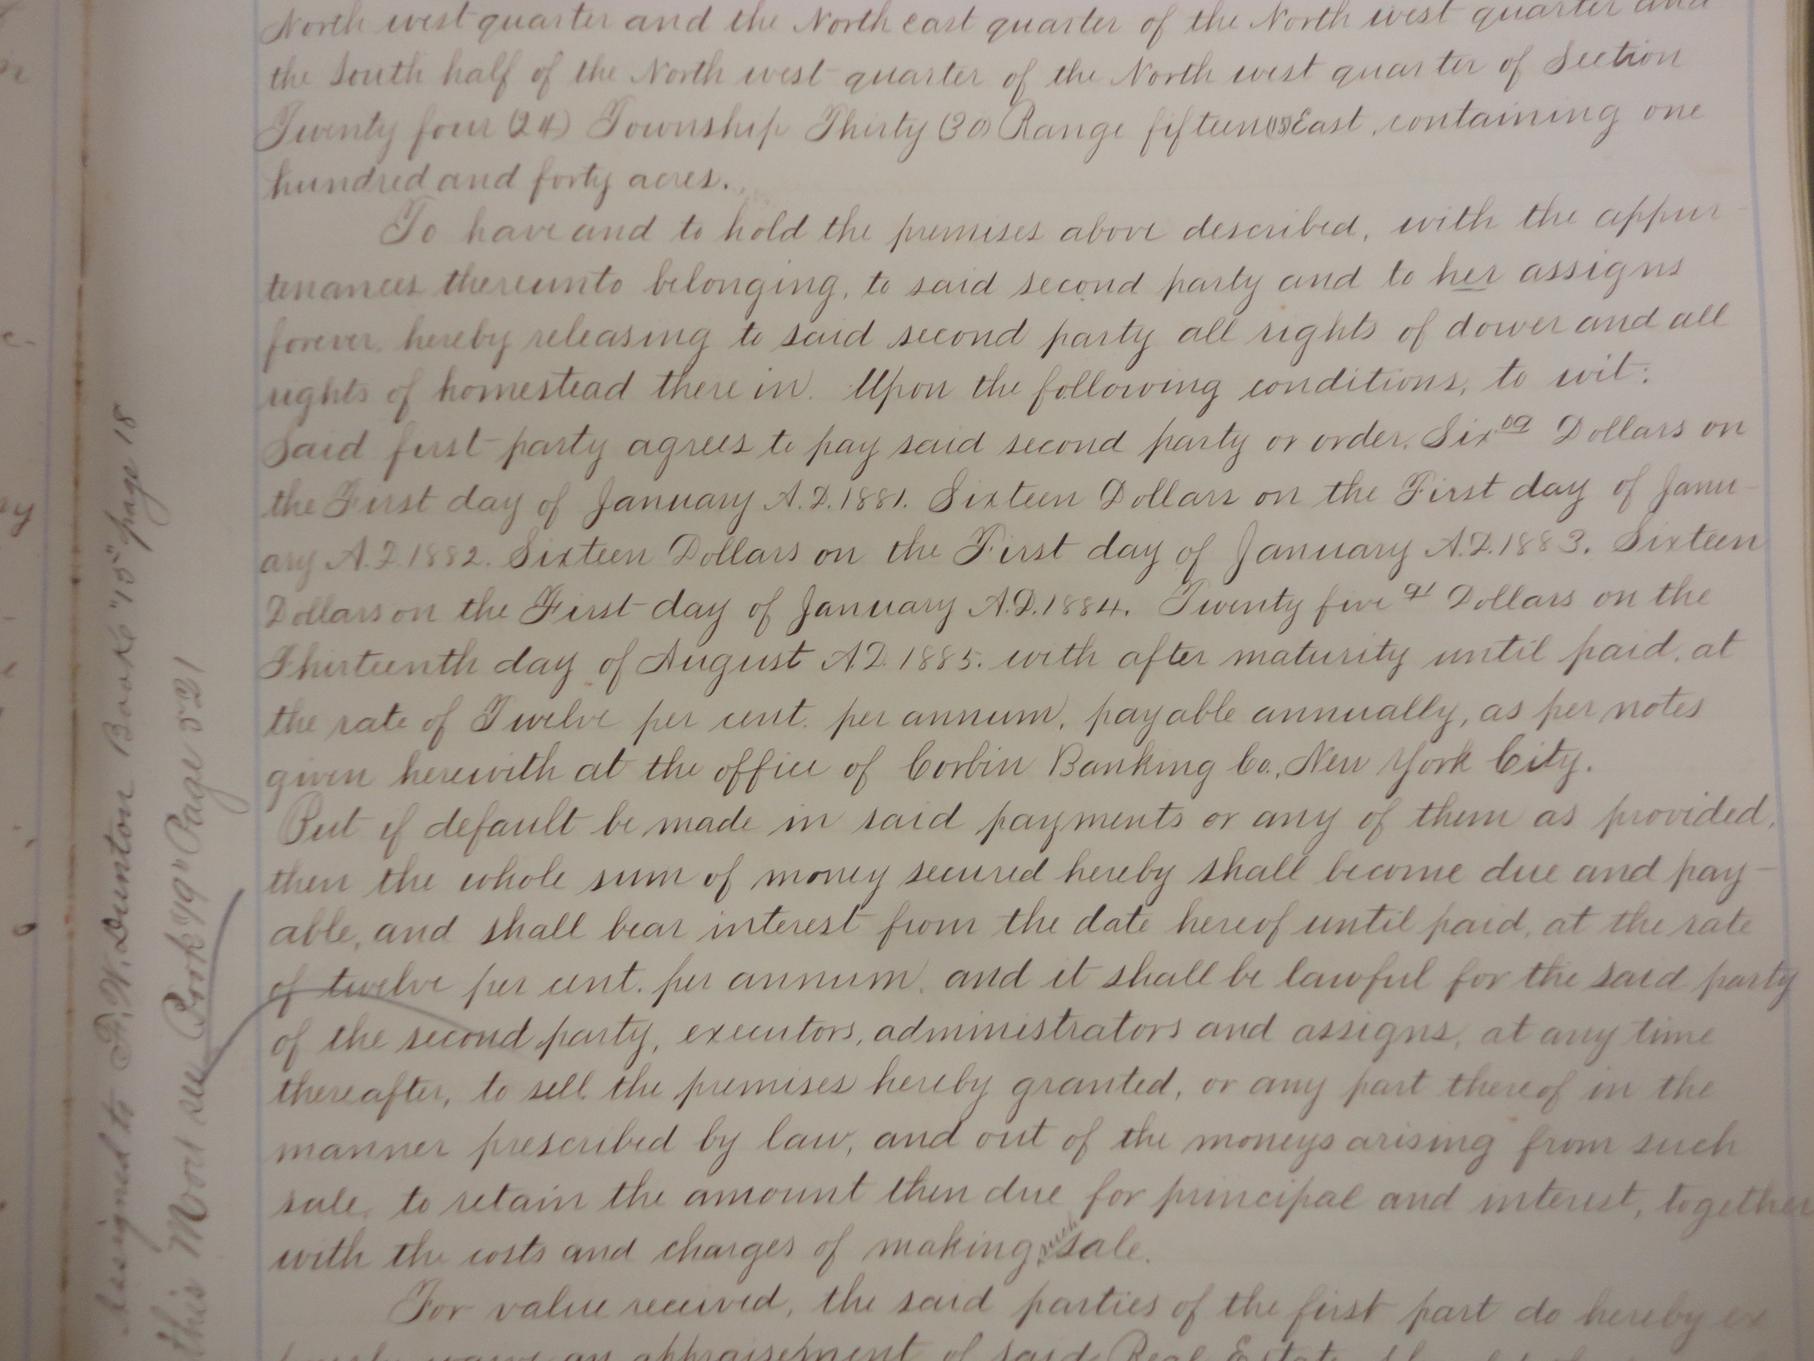 North west quarter and the North east quarter of the North west quarter and
the South half of the North west quarter of the North west quarter of Section
Twenty four (24) Township Thirty (30) Range fifteen (15) East, containing one
hundred and forty acres.
To have and to hold the premises above described, with the appur-
tenances thereunto belonging, to said second party and to her assigns
forever, hereby releasing to said second party all rights of dower and all
rights of homestead there in. Upon the following conditions, to wit:
Said first party agrees to pay said second party or order, Six Dollars on
the First day of January A.D. 1881. Sixteen Dollars on the First day of Janu-
ary A.D. 1882. Sixteen Dollars on the First day of January A.D. 1883. Sixteen
Dollars on the First day of January A.D. 1884. Twenty five Dollars on the
Thirteenth day of August A.D. 1885. with after maturity until paid, at
the rate of Twelve per cent. per annum, payable annually, as per notes
given herewith at the office of Corbin Banking Co., New York City.
But if default be made in said payments or any of them as provided,
then the whole sum of money secured hereby shall become due and pay-
able, and shall bear interest from the date hereof until paid, at the rate
of twelve per cent. per annum, and it shall be lawful for the said party
of the second party, executors, administrators and assigns, at any time
thereafter, to sell the premises hereby granted, or any part thereof in the
manner prescribed by law, and out of the moneys arising from such
sale, to retain the amount then due for principal and interest, together
with the costs and charges of making such sale.
For value received, the said parties of the first part do hereby ex
waive an appraisement of said Real Estate
Assigned to F. W. Dunton Book "15" page 18
this Mort see Book "99" Page 521